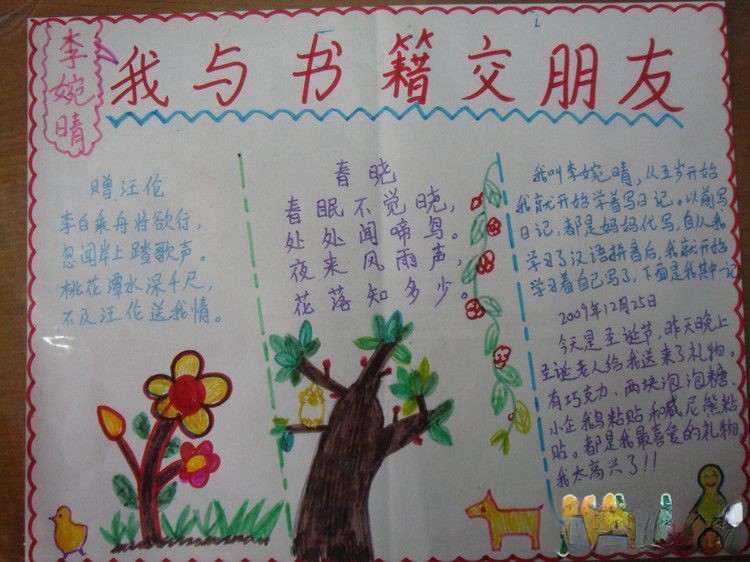 李婉晴
我与书籍交朋友
赠汪伦
李白乘舟将欲行，
忽闻岸上踏歌声。
桃花潭水深千尺，
不及汪伦送我情。
春晓
春眠不觉晓，
处处闻啼鸟。
夜来风雨声，
花落知多少。
我叫李婉晴，从五岁开始
我就开始学着写日记。以前写
日记，都是妈妈代写，自从我
学习了汉语拼音后，我就开始
学习着自己写了，下面是我其中一记
2009年12月25日
今天是圣诞节，昨天晚上
圣诞老人给我送来了礼物。
有巧克力、两块泡泡糖
小企鹅粘贴和威尼熊粘
贴。都是我最喜爱的礼物
我太高兴了!!